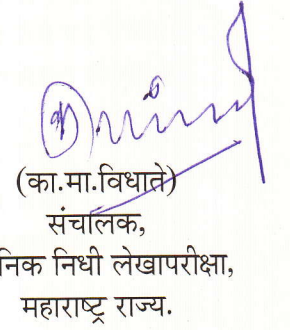 (का.मा.विधाते)
संचालक,
निक निधी लेखापरीक्षा,
महाराष्ट्र राज्य.